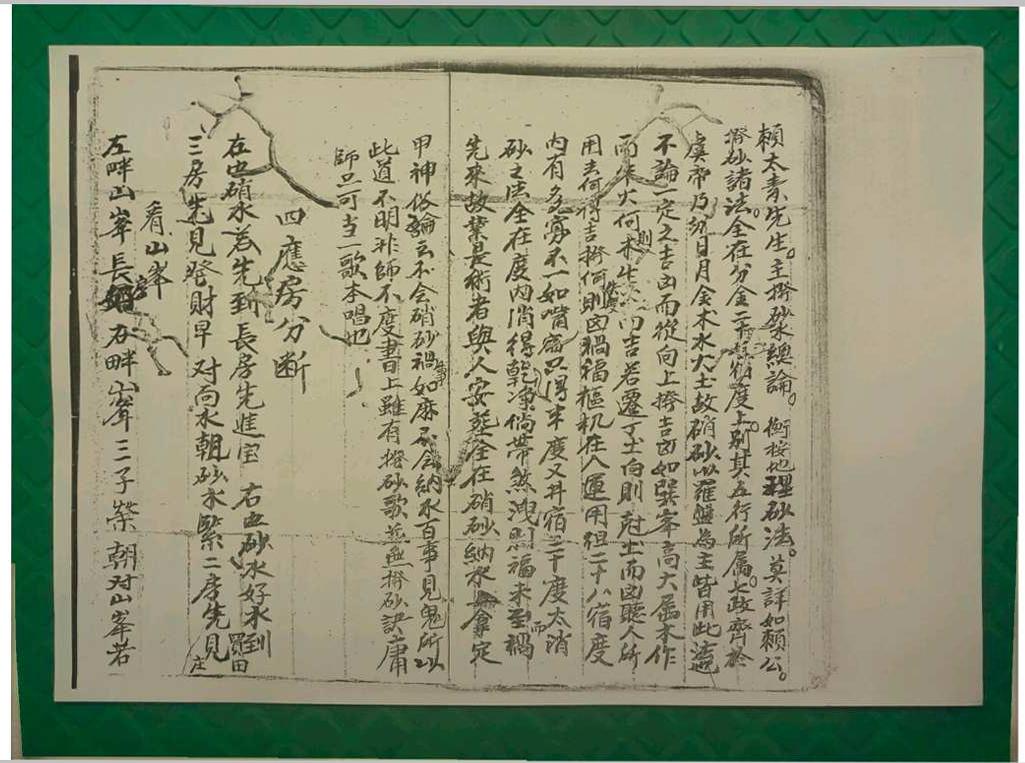 賴太素先生。主撥砂水總論。衡按地理砂法。莫詳如賴公。
撥砂諸法。全在分金二十宿度上。别其五行所属。七政齊於
虞帝乃
日月金木水火土故硝砂以羅盤為主皆用此法
不論一定之吉凶而從向上撥吉凶如巽峯高大属木作
而朱火向則木生火而吉若
土向則尅土而凶聽人所
用去何
得吉撥何則凶禍福樞机在人運用但二十八宿度
内有多寡不一如嘴宿只得半度又井宿三十度太消
砂之法全在度内消得乾净倘带煞洩則福未至而禍
先來故業是術者與人安塟全在硝砂納水
拿定
甲神俗論云不会硝砂禍事如麻不会納水百事見鬼所以
此道不明非師不度書曰上雖有撥砂歌
無撥砂訣庸
師只可当一歌本唱也
四應房分断
左边硝水為先到長房先進宝 右边砂水好水到
三房先見發財早 对向水朝砂水緊二房先見買田庄
看山峯
左畔山峯長
房 右畔山峯三子榮 朝对山峯若